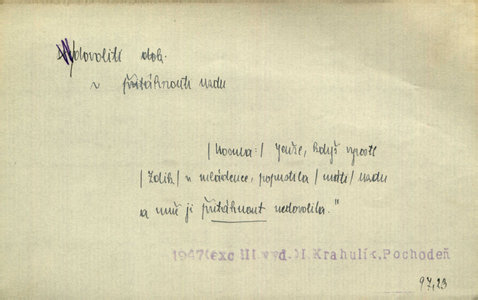 dovoliti dok.
v přitáhnouti uzdu
"Jenže, když vyrostl
/Zdík/ v mládence, popustila /máti/ uzdu
a muž jí přitáhnout nedovolila."
1947(exc III.vyd.)I.Krahulík,Pochodeň
97,23